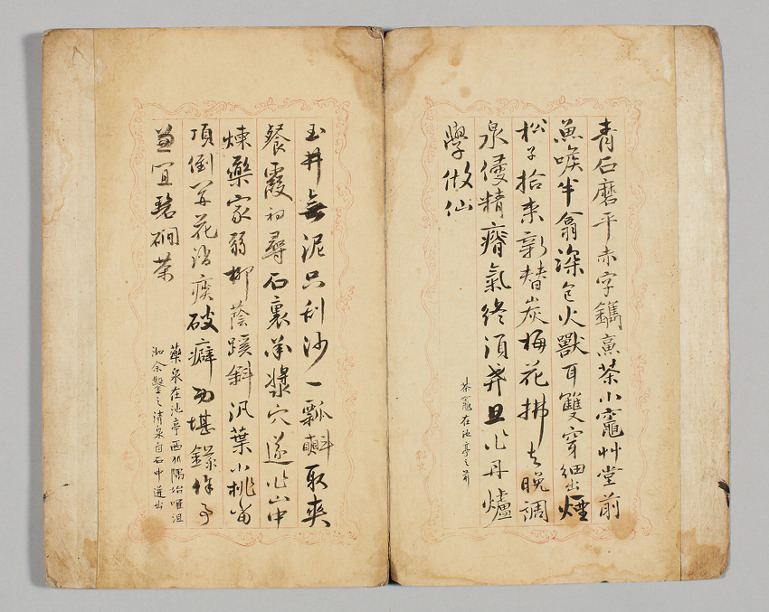 青石磨平赤字鐫烹茶小竈艸堂前
魚喉半翕深包火獸耳雙穿細出煙
松子拾来新替炭梅花拂去晚調
泉侵精瘠氣終須戒且作丹爐
學做仙
茶竈在池亭之前
玉井無泥只刮沙一瓢㪺取爽
餐霞初尋石裏承漿穴遂作山中
煉藥家弱柳蔭蹊斜汎葉小桃當
頂倒開花消痰破癖功堪錄事
兼宜碧磵茶
藥泉在池亭西北隅始唯沮
洳余鑿之清泉自石中迸出